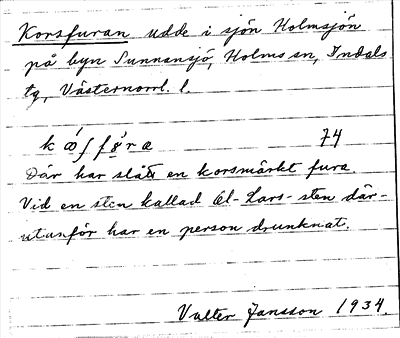 Korsfuran udde i sjön Holmsjön
på byn Sunnansjö, Holms sn, Indals
tg, Västernorrl. l.
k ω̄́ ʃ f ɣ̄̀ r a 74
Där har stått en korsmärkt fura.
Vid en sten kallad Ol-Lars-sten där-
utanför har en person drunknat.
Valter Jansson 1934.